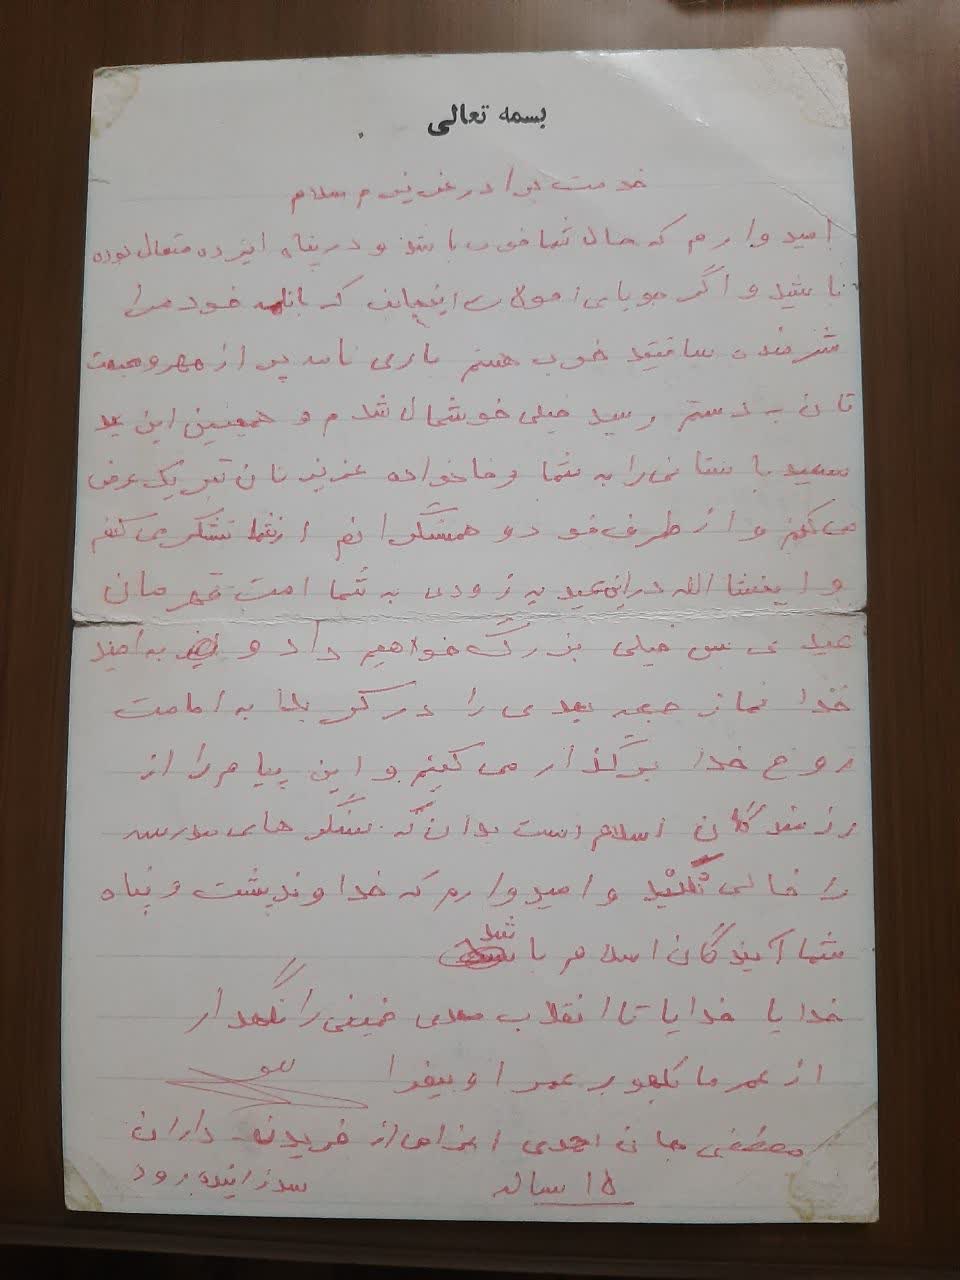 بسمه تعالی
خدمت برادر عزیزم سلام
امیدوارم که حال شما خوب باشد و در پناه ایزد متعال بوده
باشید و اگر جویای احولات اینجانب که با نامه خود مرا
شرمنده ساختید خوب هستم باری نامه پر از مهر و محبت
تان به دستم رسید خیلی خوشحال شدم و همچنین این عید
سعید باستانی را به شما و خانواده عزیزتان تبریک عرض
می کنم و از طرف خود و همسنگرانم از شما تشکر می کنم
و اینشا الله در این عید به زودی به شما امت قهرمان
عیدی بس خیلی بزرگ خواهیم داد و به امید
خدا نماز جمعه بعدی را در کربلا به امامت
روح خدا برگذار می کنیم و این پیام را از
رزمندگان اسلام است بدان که سنگر های مدرسه
را خالی نکنید و امیدوارم که خداوند پشت و پناه
شما آیندگان اسلام باشد
خدایا خدایا تا انقلاب مهدی خمینی را نگهدار
از عمر ما بکاه و بر عمر او بیفزا
مصطفی جان احمدی اعزامی از فریدن - داران
۱۵ ساله
سد زاینده رود